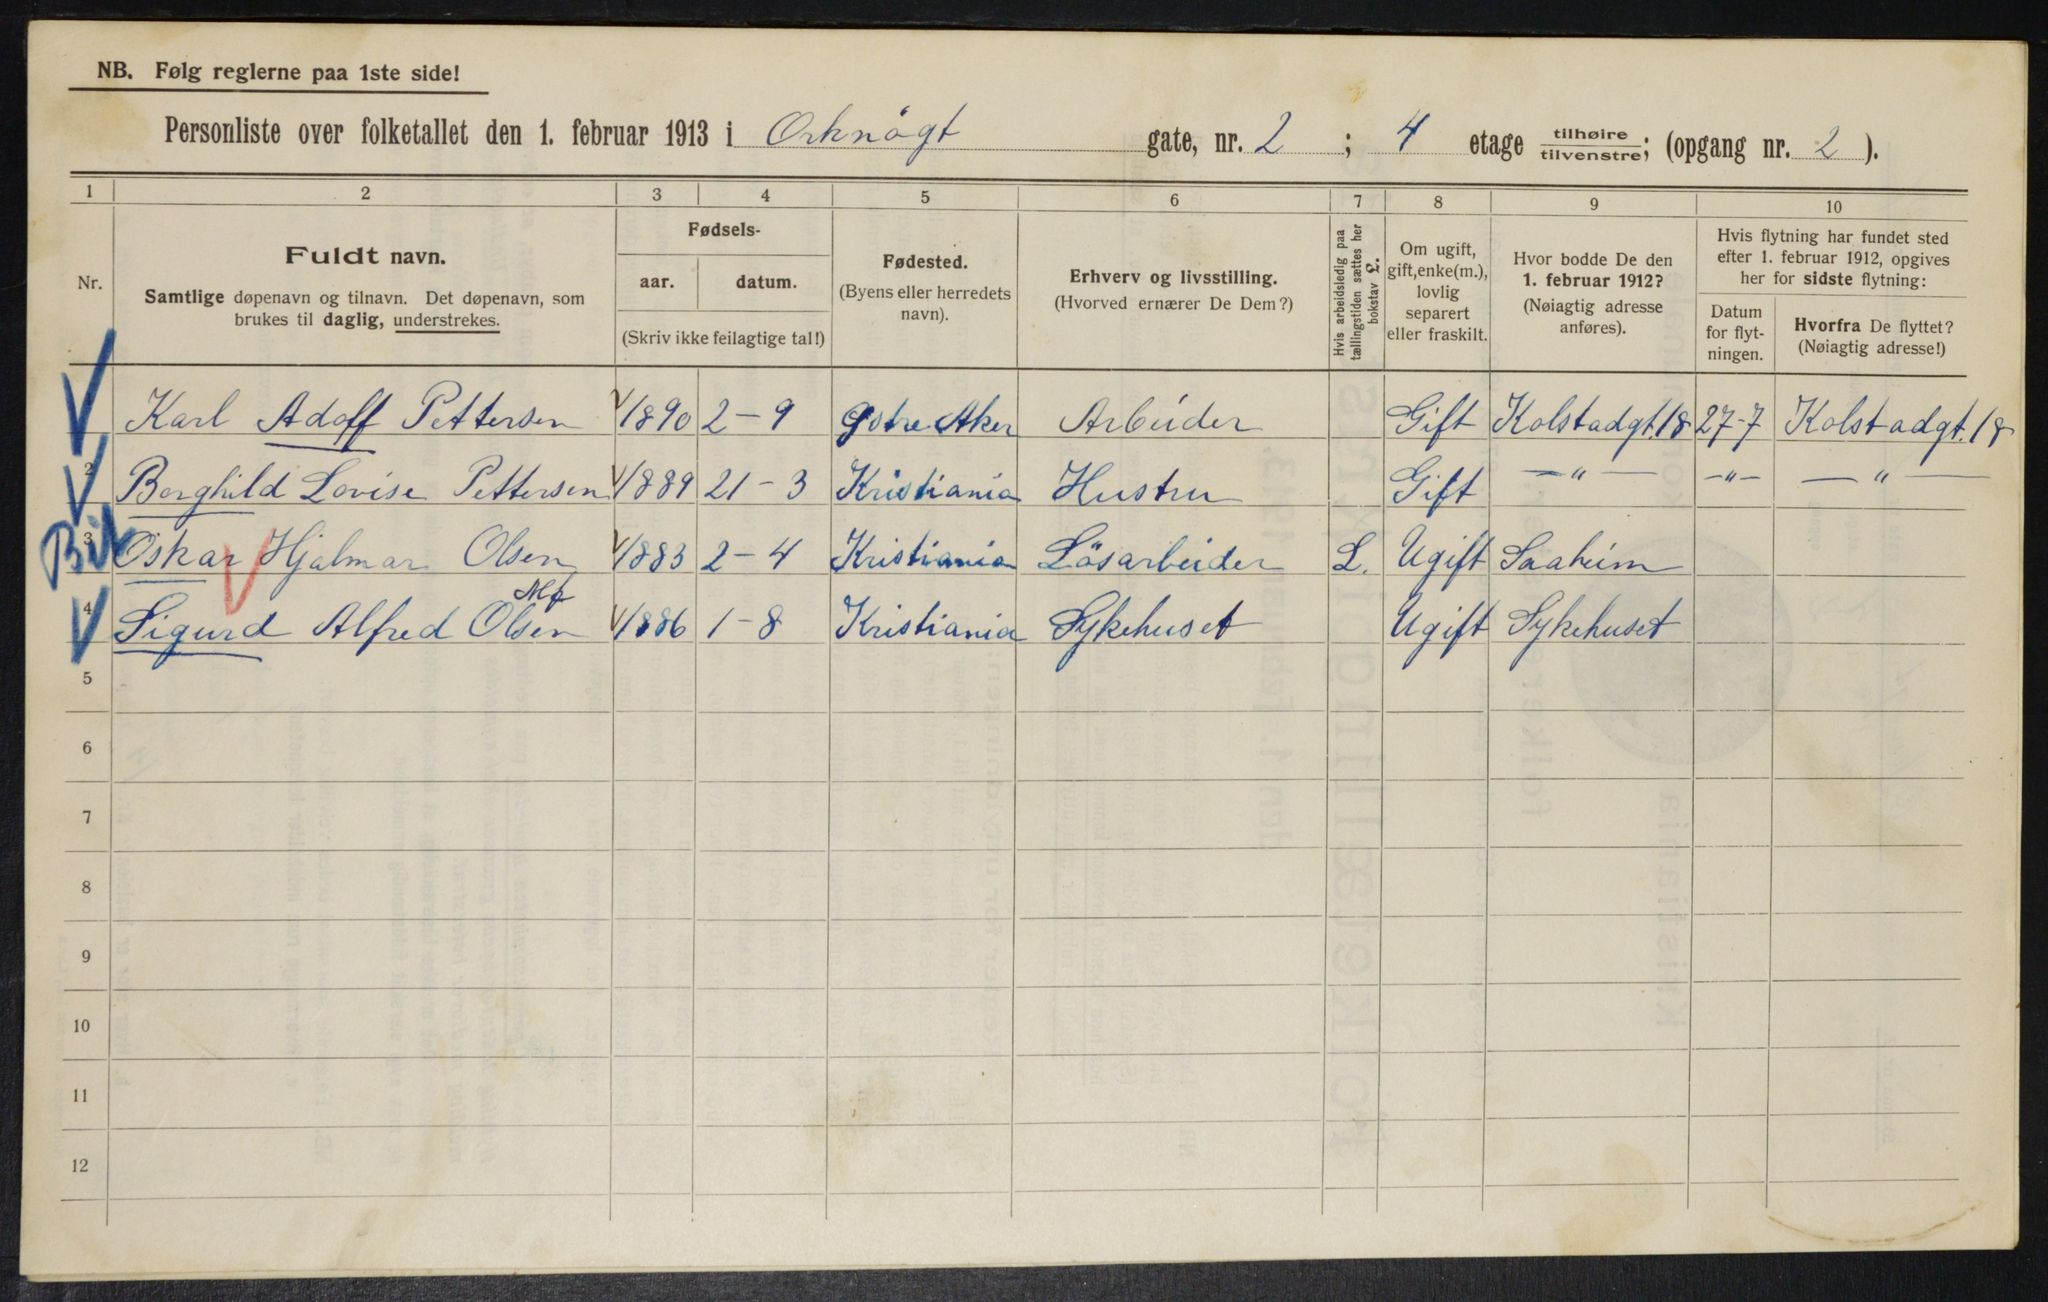 NB. Følg reglerne paa 1ste side!
Personliste over folketallet den 1. februar 1913 i Orknögt gate, nr. 2 ; 4 etage tilhøire/tilvenstre; (opgang nr. 2 ).
1 2 3 4 5 6 7 8 9 10
Nr.
Fuldt navn.
Samtlige døpenavn og tilnavn. Det døpenavn, som
brukes til daglig, understrekes.
Fødsels-
aar. datum.
(Skriv ikke feilagtige tal!)
Fødested.
(Byens eller herredets
navn).
Erhverv og livsstilling.
(Hvorved ernærer De Dem?)
Hvis arbeidsledig paa
tællingstiden sættes her
bokstav L.
Om ugift,
gift, enke(m.),
lovlig
separert
eller fraskilt.
Hvor bodde De den
1. februar 1912?
(Nøiagtig adresse
anføres).
Hvis flytning har fundet sted
efter 1. februar 1912, opgives
her for sidste flytning:
Datum
for flyt-
ningen.
Hvorfra De flyttet?
(Nøiagtig adresse!)
Karl Adolf Pettersen 1890 2-9 Östre Aker Arbeider Gift Kolstadgt. 18 27-7 Kolstadgt. 18
2 Borghild Lovise Pettersen 1889 21-3 Kristiania Hustru Gift —"— —"— —"—
3 Oskar Hjalmar Olsen 1883 2-4 Kristiania Lösarbeider L. Ugift Saaheim
4 Sigurd Alfred Olsen 1886 1-8 Kristiania Sykehuset Ugift Sykehuset
5
6
7
8
9
10
11
12